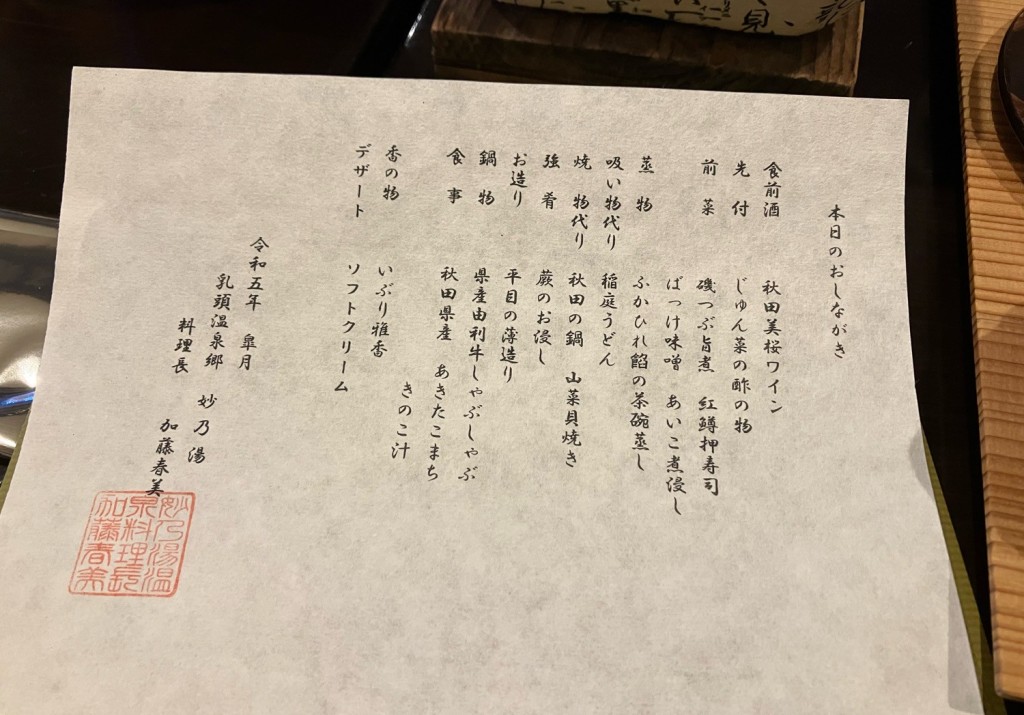 本日のおしながき
食前酒　秋田美桜ワイン
先付　じゅん菜の酢の物
前菜　磯つぶ旨煮　紅鱒押寿司
ばっけ味噌　あいこ煮浸し
蒸物　ふかひれ餡の茶碗蒸し
吸い物代り　稲庭うどん
焼物代り　秋田の鍋　山菜貝焼き
強肴　蕨のお浸し
お造り　平目の薄造り
鍋物　県産由利牛しゃぶしゃぶ
食事　秋田県産　あきたこまち
きのこ汁
香の物　いぶり雅香
デザート　ソフトクリーム
令和五年　皐月
乳頭温泉郷　妙乃湯
料理長　加藤春美
妙乃湯温
泉料理長
加藤春美
見